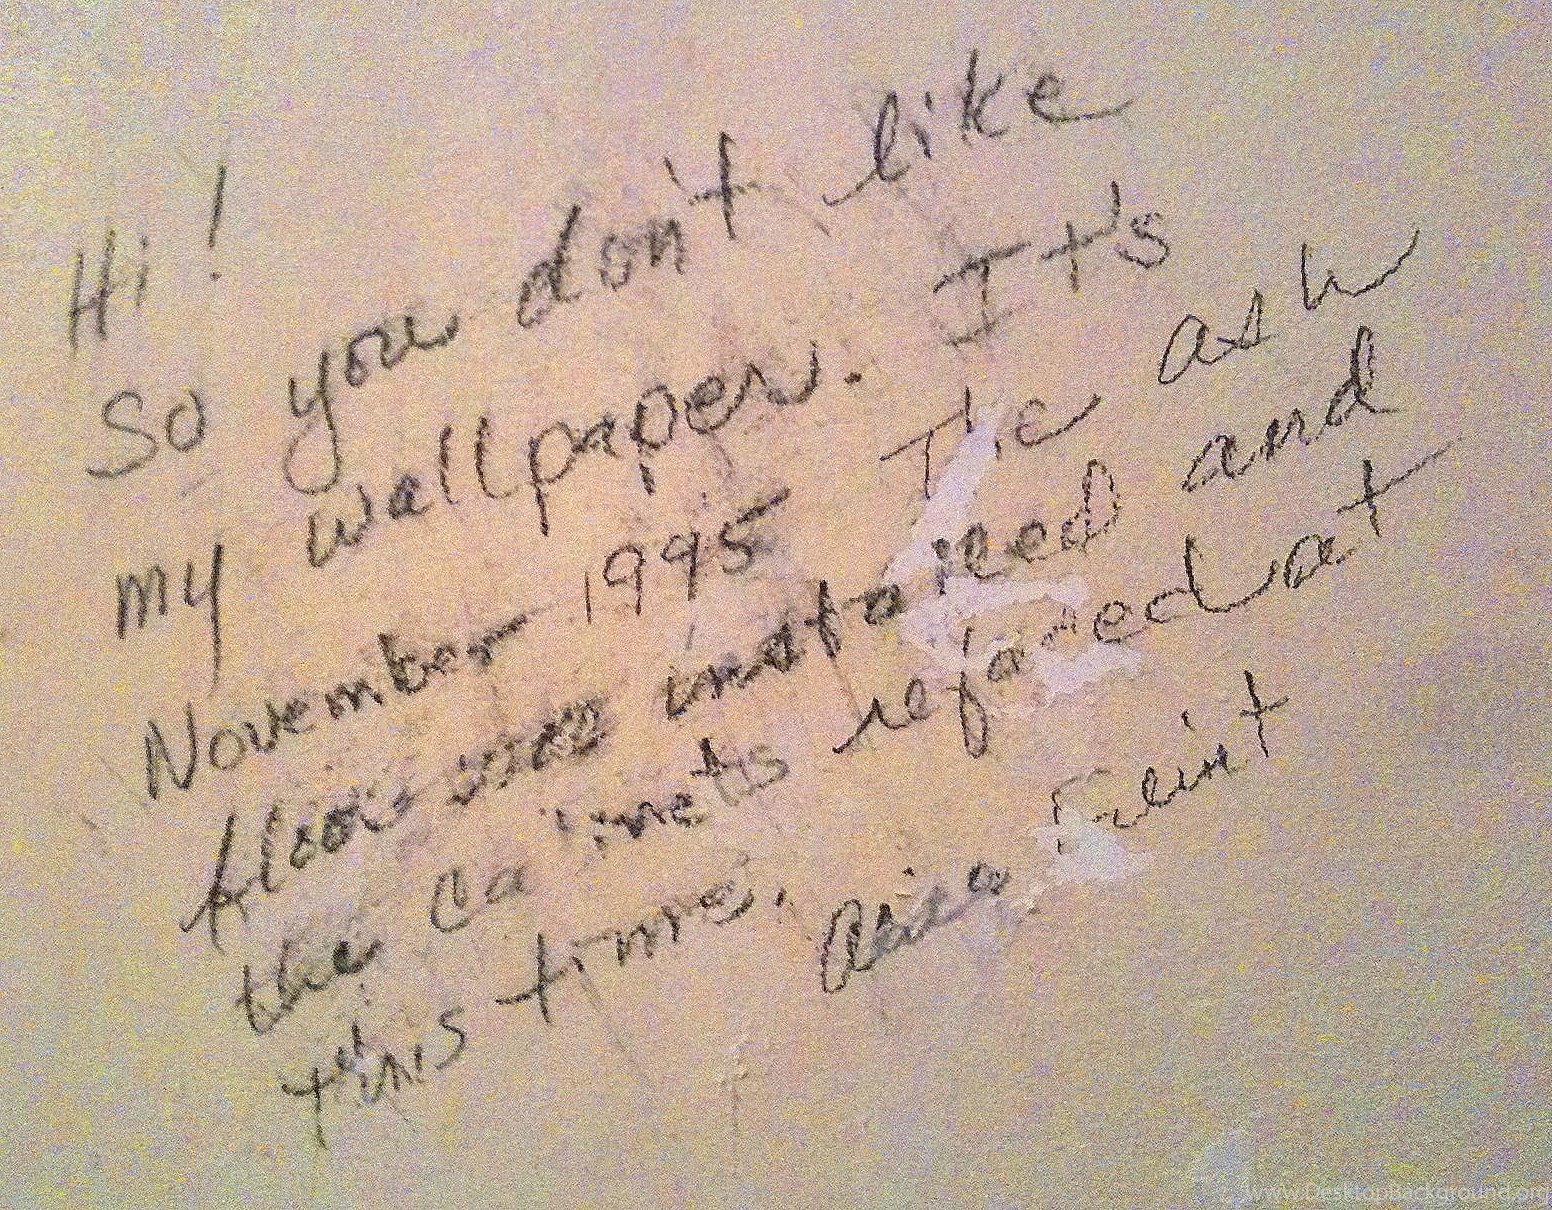 Hi!
So you don't like
my wallpaper. It's
November 1995 The ash
floor was and
the ca inets refaced at
this time.
www.DesktopBackground.org